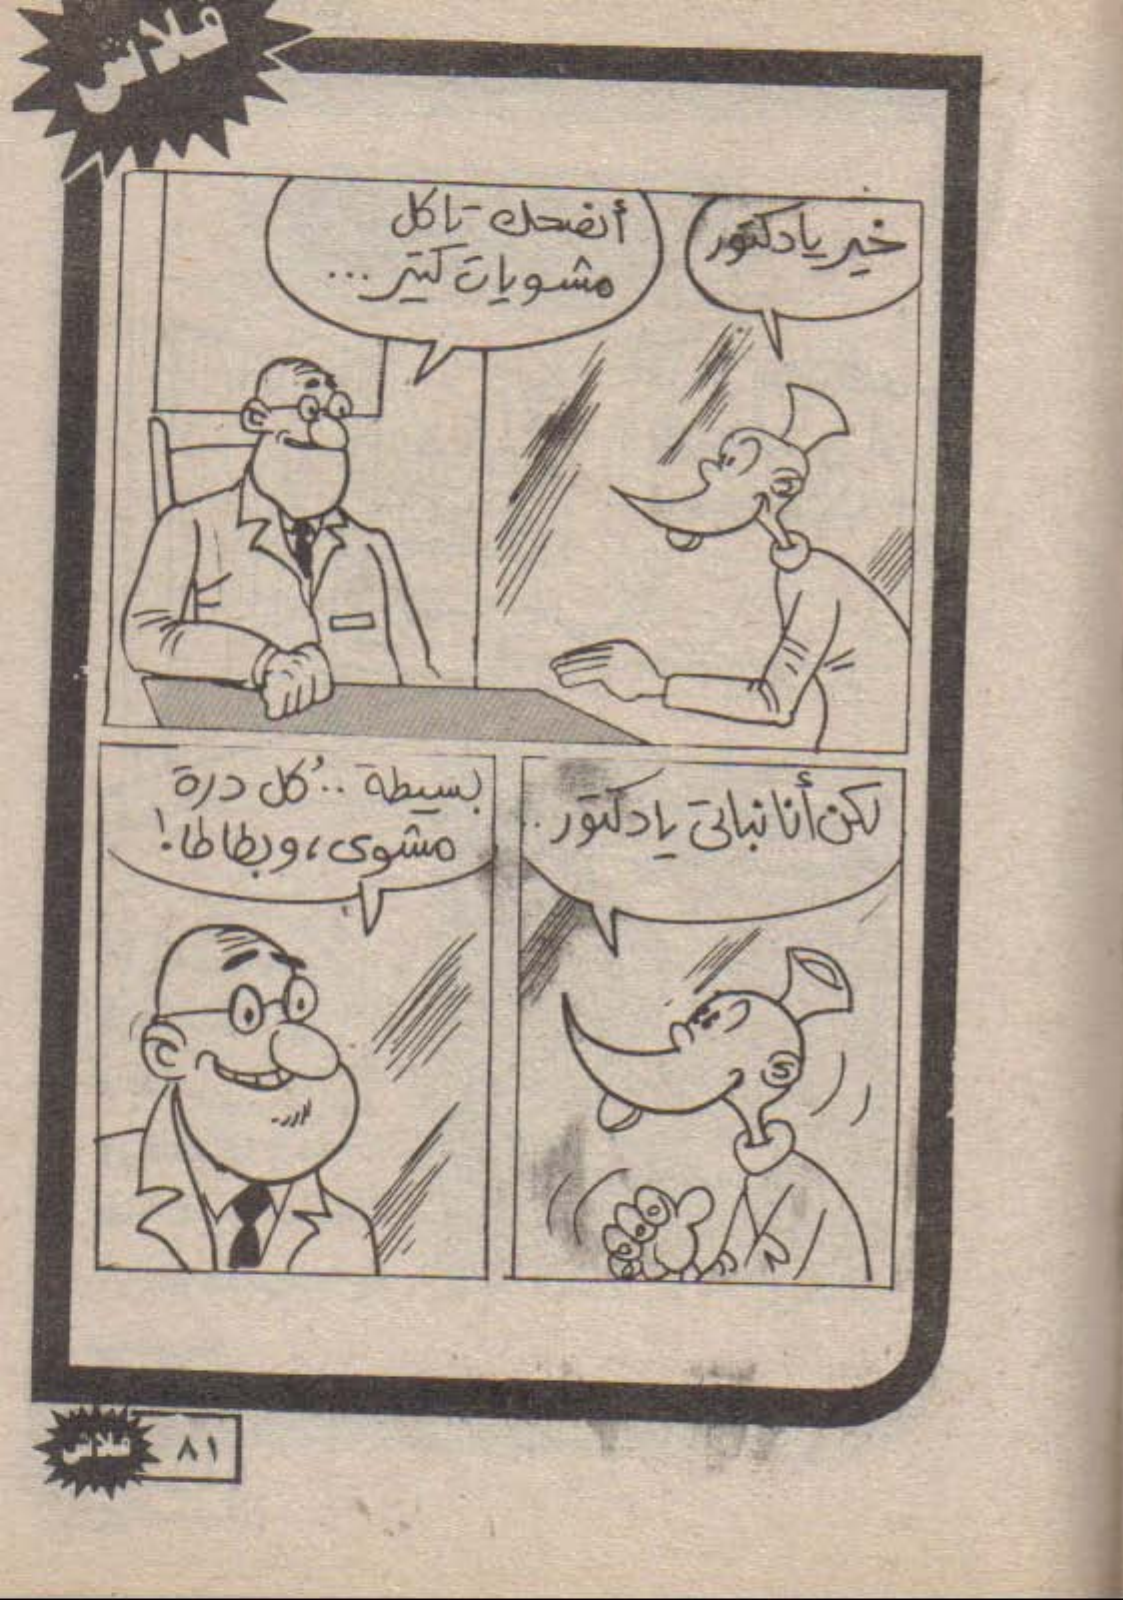 فلاش
خير يا دكتور
أنصحك تاكل
مشويات كتير...
لكن أنا نباتى يا دكتور..
بسيطة.. كُل درة
مشوى، وبطاطا!
فلاش
٨١